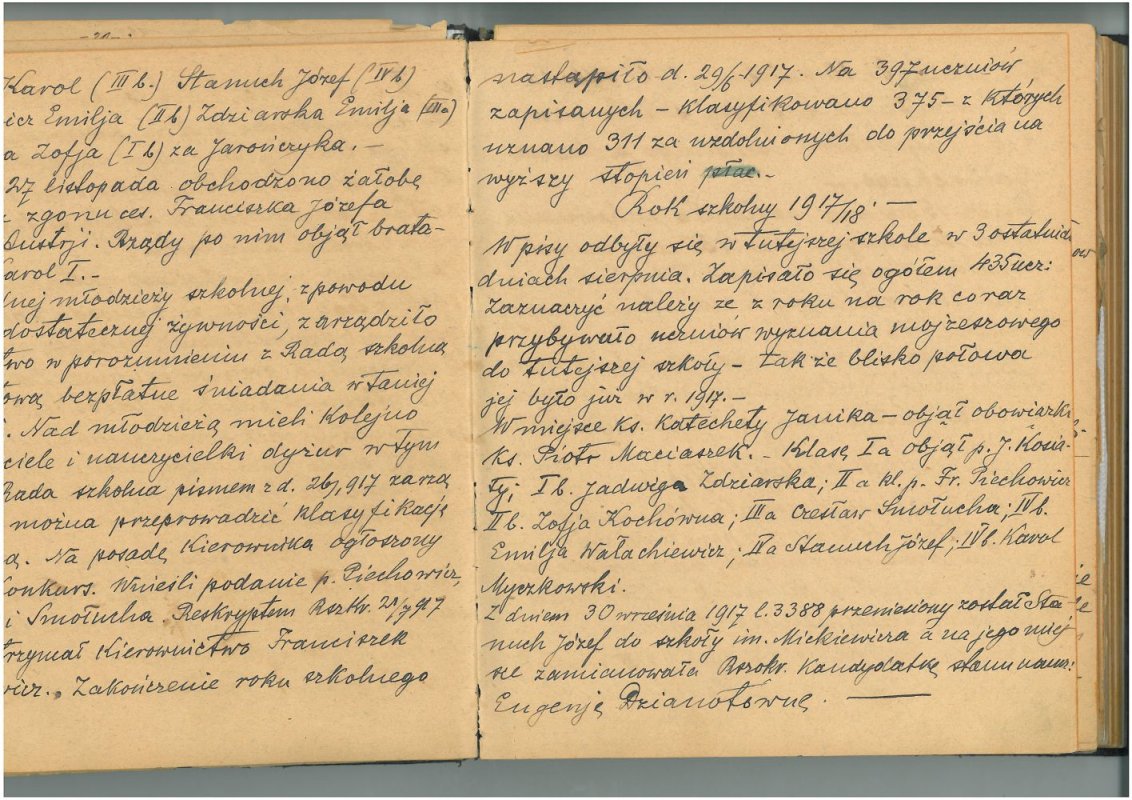 -20-
Karol (III b.) Stanuch Józef (IV b)
icz Emilja (II b) Zdziarska Emilja (III a)
a Zofja (I b) za Jarończyka. -
27 listopada obchodzono żałobę
zgonu ces. Franciszka Józefa
Austrji. Rządy po nim objął brata-
Karol I. -
lnej młodzieży szkolnej, z powodu
dostatecznej żywności, zarządziło
two w porozumieniu z Radą szkolną
ową bezpłatne śniadania w taniej
. Nad młodzieżą mieli kolejno
ciele i nauczycielki dyżur w tym
Rada szkolna pismem z d. 26/1 917 zarzą
można przeprowadzić klasyfikację
ą. Na posadę Kierownika ogłoszony
konkurs. Wnieśli podanie p. Piechowicz,
i Smołucha Reskryptem Rszkr. 21/7 917
trzymał Kierownictwo Franciszek
wicz. Zakończenie roku szkolnego
nastąpiło d. 29/6 1917. Na 397 uczniów
zapisanych - klasyfikowano 375 - z których
uznano 311 za uzdolnionych do przejścia na
wyższy stopień płac. -
Rok szkolny 1917/18. -
Wpisy odbyły się w tutejszej szkole w 3 ostatnich
dniach sierpnia. Zapisało się ogółem 435 ucz:
Zaznaczyć należy ze z roku na rok coraz
przybywało uczniów wyznania mojżeszowego
do tutejszej szkoły - tak że blisko połowa
jej było już w r. 1917. -
W miejsce ks. Katechety Janika - objął obowiązki
ks. Piotr Maciaszek. - Klasę I a objął p. J. Kosia-
ty; I b. Jadwiga Zdziarska; II a kl. p. Fr. Piechowicz
II b. Zofja Kochówna; III a Czesław Smołucha; IV b.
Emilja Wałachiewicz; II a Stanuch Józef; IV b. Karol
Myczkowski.
Z dniem 30 września 1917 l. 3388 przeniesiony został Sta-
nuch Józef do szkoły im. Mickiewicza a na jego miej
sce zamianowała Rszokr. Kandydatkę stanu naucz:
Eugenję Dzianotównę. -